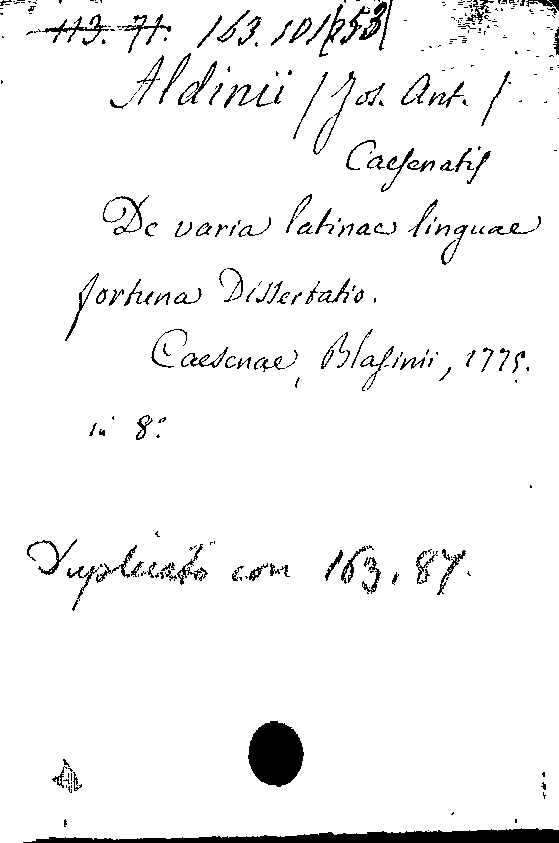 113. 71. 163. 101
Aldinii / Jos. Ant. /
Caesenatis
De varia latinae linguae
fortuna Dissertatio.
Caesenae, Blasinii, 1775.
in 8.°
Duplicato con 163. 87.